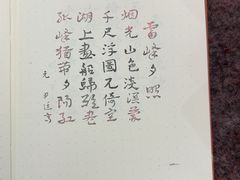 雷峰夕照
烟光山色淡溟濛
千尺浮圖兀倚空
湖上畫船歸欲盡
孤峰猶帶夕陽紅
元 尹廷高